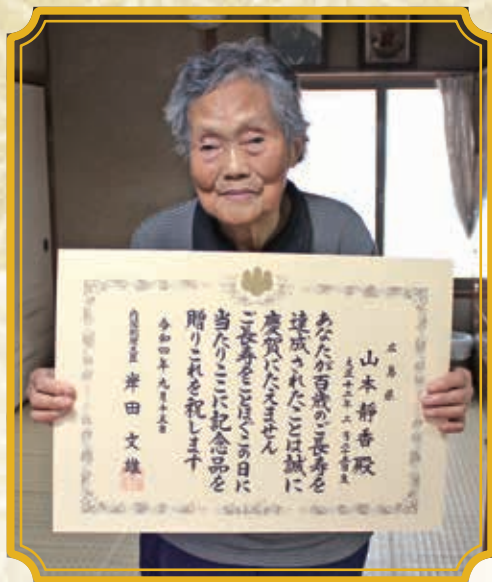 広島県
山本靜香殿
大正十二年二月
あなたが百歳のご長寿を
達成されたことは誠に
慶賀にたえません
ご長寿をことほぐこの日に
当たりここに記念品を
贈りこれを祝します
令和四年九月十五日
内閣総理大臣 岸田文雄